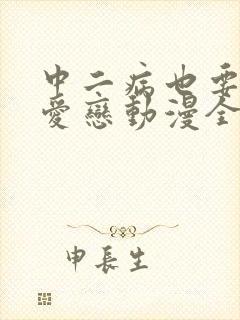 中二病也要
愛戀動漫全
申長生